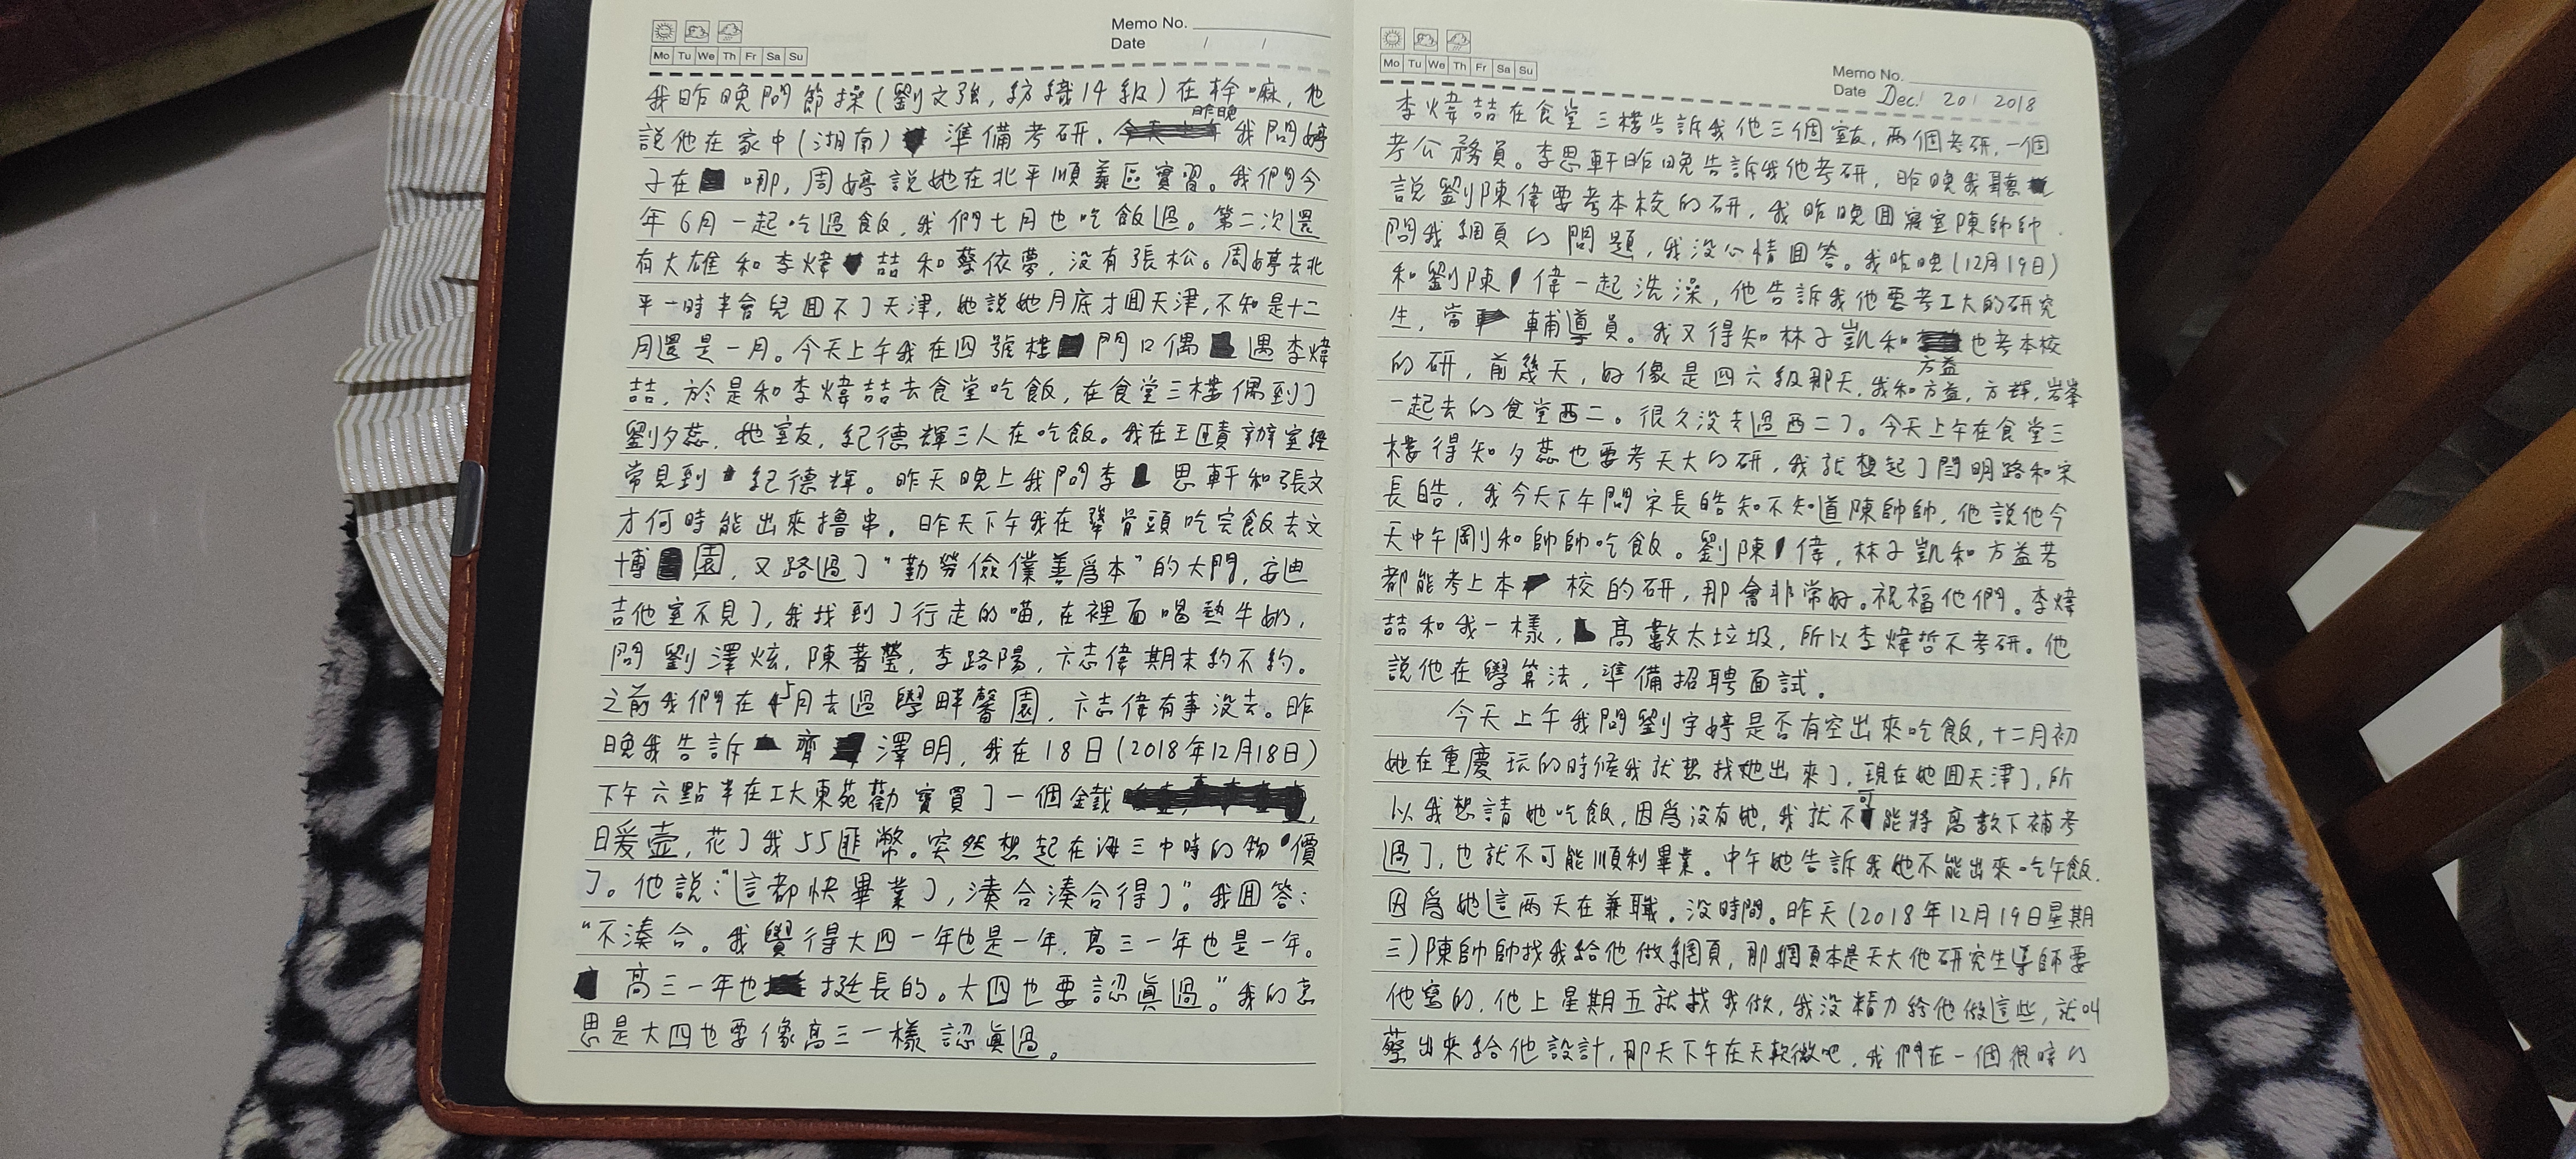 Memo No.
Date / /
Mo Tu We Th Fr Sa Su
我昨晚問節操(劉文強,紡織14級)在幹嘛,他
說他在家中(湖南)準備考研.昨晚我問婷
子在哪,周婷說她在北平順義區實習。我們今
年6月一起吃過飯,我們七月也吃飯過。第二次還
有大雄和李煒喆和蔡依夢,没有張松。周婷去北
平一時半會兒囬不了天津,她說她月底才囬天津,不知是十二
月還是一月。今天上午我在四號樓門口偶遇李煒
喆,於是和李煒喆去食堂吃飯,在食堂三樓偶到了
劉夕蕊,她室友,紀德輝三人在吃飯。我在王賾辦室經
常見到紀德輝。昨天晚上我問李思軒和張文
才何時能出來擼串。昨天下午我在犟骨頭吃完飯去文
博園,又路過了“勤勞儉僕善爲本”的大門,安迪
吉他室不見了,我找到了行走的喵,在裡面喝熱牛奶,
問劉澤炫,陳著瑩,李路陽,卞志偉期末約不約。
之前我們在5月去過學畔馨園,卞志偉有事没去。昨
晚我告訴齊澤明,我在18日(2018年12月18日)
下午六點半在工大東苑勸寶買了一個鐵
暖壺,花了我55匪幣。突然想起在海三中時的物價
了。他說:“這都快畢業了,湊合湊合得了”。我囬答:
“不湊合。我覺得大四一年也是一年,高三一年也是一年。
高三一年也挺長的。大四也要認眞過。”我的意
思是大四也要像高三一樣認眞過。
Memo No.
Date Dec. 20 2018
Mo Tu We Th Fr Sa Su
李煒喆在食堂三樓告訴我他三個室友,兩個考研,一個
考公務員。李思軒昨晚告訴我他考研,昨晚我聽
說劉陳偉要考本校的研,我昨晚囬寢室陳帥帥
問我網頁的問題,我没心情囬答。我昨晚(12月19日)
和劉陳偉一起洗澡,他告訴我他要考工大的研究
生,當輔導員。我又得知林子凱和方益也考本校
的研,前幾天,好像是四六級那天,我和方益,方輝,岩峯
一起去的食堂西二。很久没去過西二了。今天上午在食堂三
樓得知夕蕊也要考天大的研,我就想起了閆明路和宋
長皓,我今天下午問宋長皓知不知道陳帥帥,他說他今
天中午剛和帥帥吃飯。劉陳偉,林子凱和方益若
都能考上本校的研,那會非常好。祝福他們。李煒
喆和我一樣,高數太垃圾,所以李煒哲不考研。他
說他在學算法,準備招聘面試。
今天上午我問劉宇婷是否有空出來吃飯,十二月初
她在重慶玩的時候我就想找她出來了,現在她囬天津了,所
以我想請她吃飯,因爲没有她,我就不可能將高數下補考
過了,也就不可能順利畢業。中午她告訴我她不能出來吃午飯.
因爲她這兩天在兼職,没時間。昨天(2018年12月19日星期
三)陳帥帥找我給他做網頁,那網頁本是天大他研究生導師要
他寫的,他上星期五就找我做,我没精力給他做這些,就叫
蔡出來給他設計,那天下午在天軟微吧,我們在一個很暗的